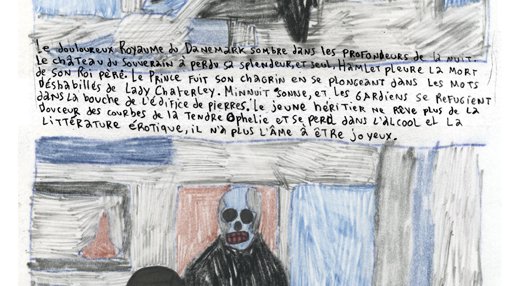 Le douloureux Royaume du Danemark sombre dans les profondeurs de la nuit.
Le château du Souverain a perdu sa splendeur, et seul, Hamlet pleure la mort
de son Roi père. Le Prince fuit son chagrin en se plongeant dans les mots
déshabillés de Lady Chaterley. Minnuit sonne, et les gardiens se refugient
dans la bouche de l'édifice de pierres. Le jeune héritier ne rêve plus de la
douceur des courbes de la tendre Ophelie et se perd dans l'alcool et la
littérature érotique, il n'a plus l'âme à être joyeux.